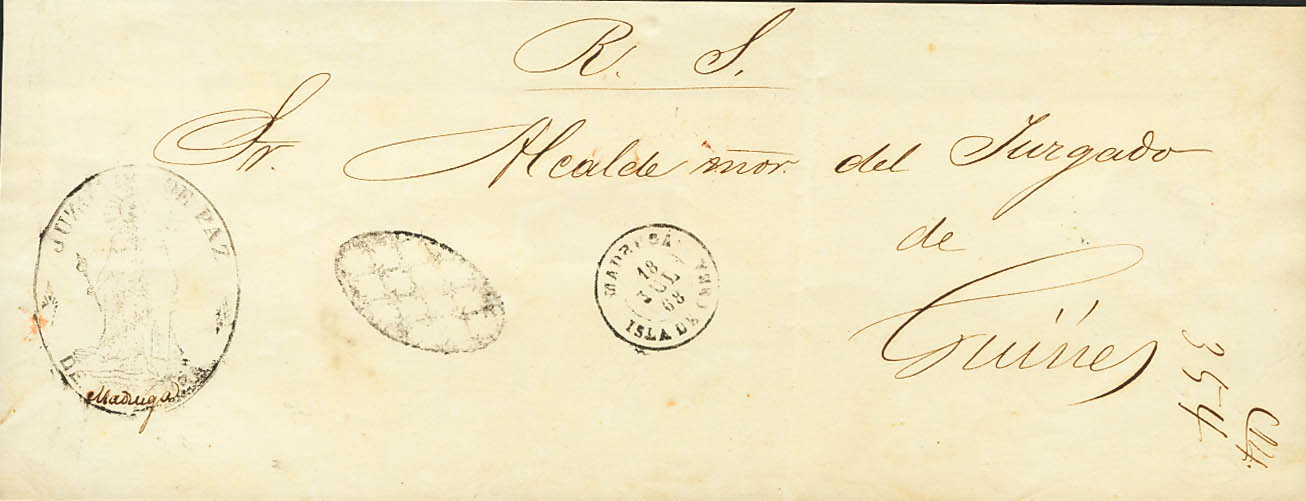 R. S.
Sr. Alcalde mor. del Jurgado
de
Güines
JUZ DE PAZ
DE
Madruga
MADRUGA
18
JUL
68
ISLA DE CUBA
354